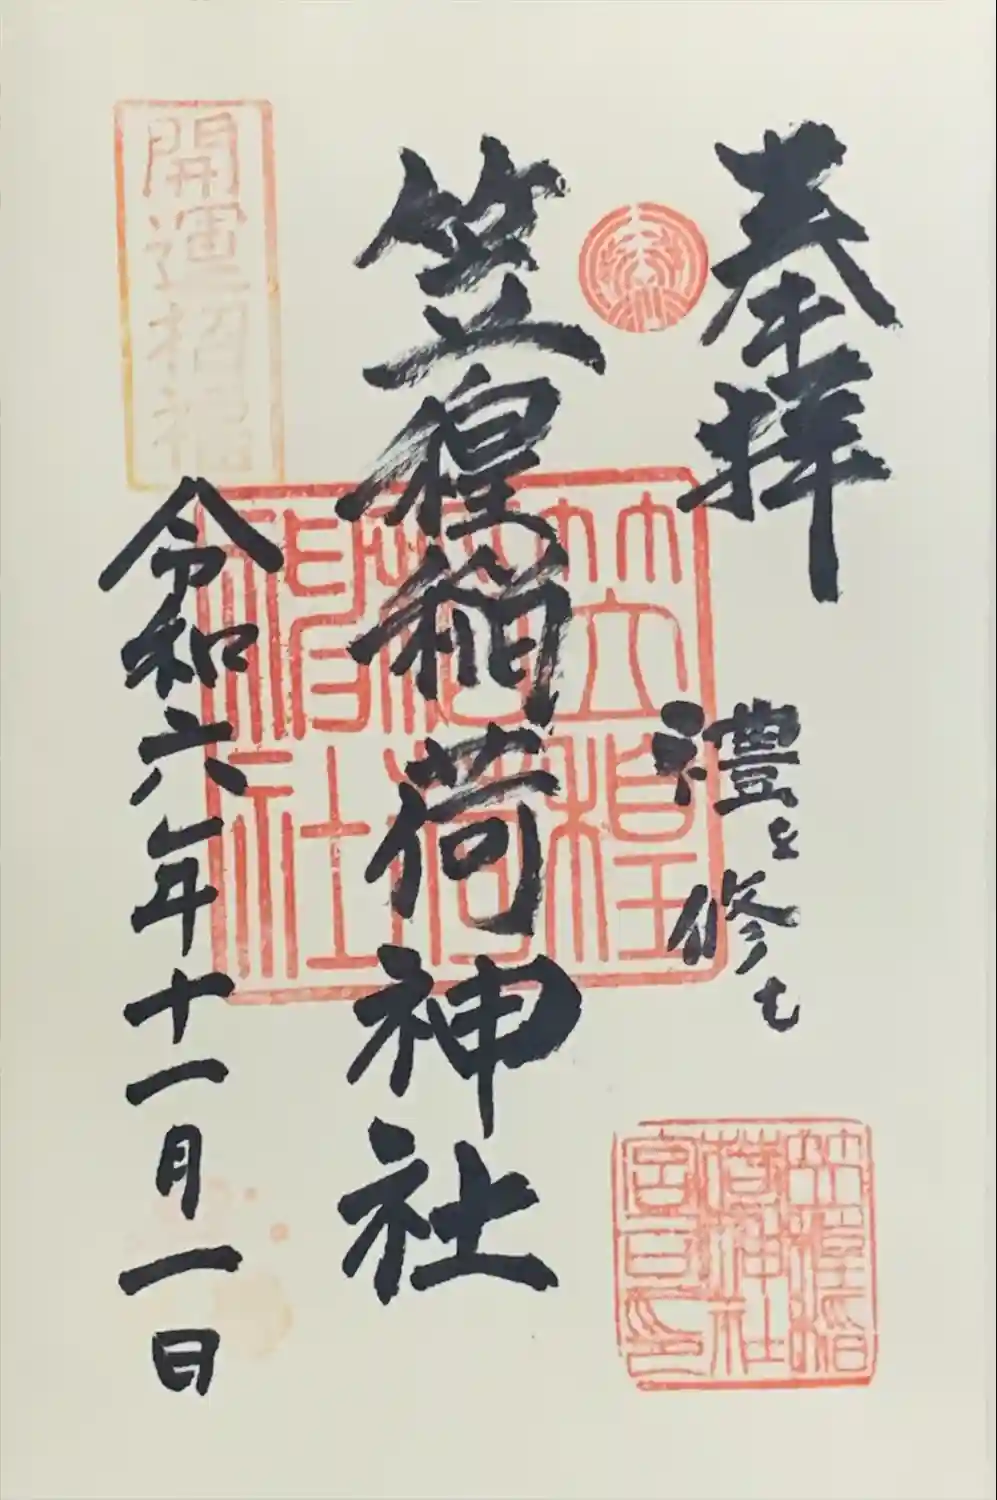 奉拝
禮を修む
笠䅣稲荷神社
開運招福
令和六年十一月一日
笠䅣
稲荷
神社
笠䅣稲
荷神社
宮司印